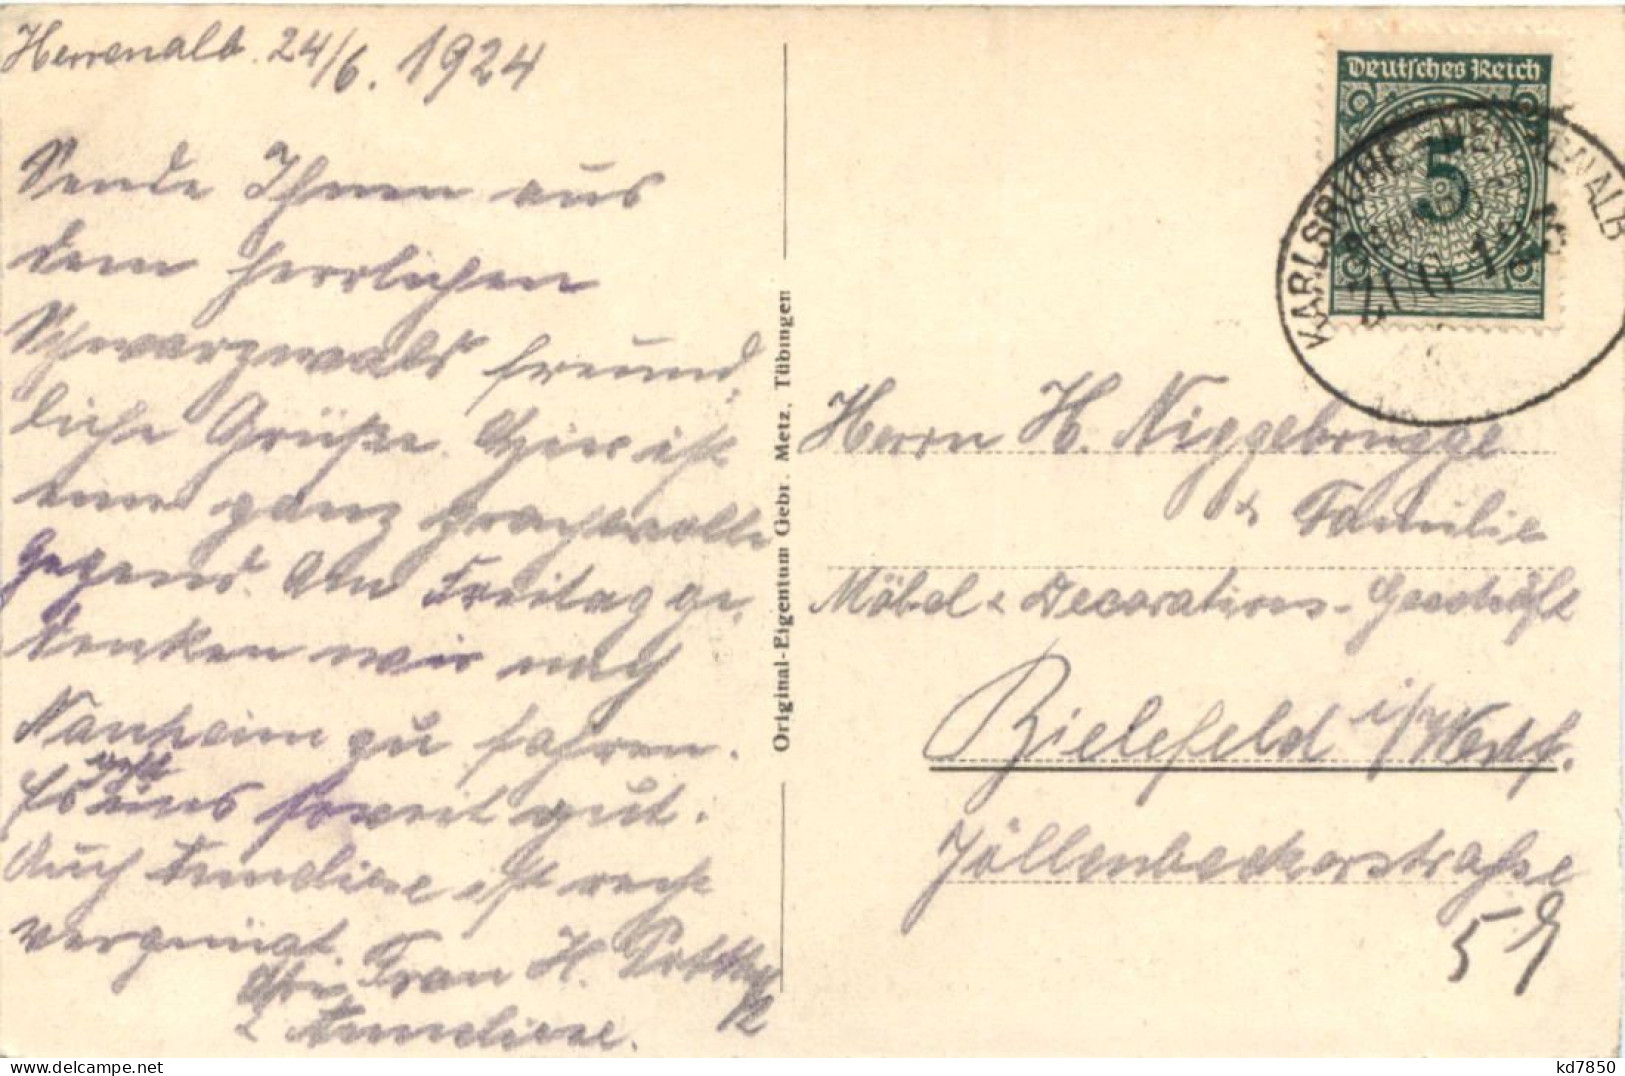 Herrenalb. 24/6. 1924
Sende Ihnen aus
dem herrlichen
Schwarzwald freund-
liche Grüße. Hier ist
eine ganz prachtvolle
Gegend. Am Freitag ge-
denken wir nach
Nauheim zu fahren.
Es geht uns soweit gut.
Auch Anneliese ist recht
vergnügt.
Frau H.
& Anneliese.
Original-Eigentum Gebr. Metz, Tübingen
Deutsches Reich
5
KARLSRUHE - HERRENALB
Herrn H. Niggebrügge
& Familie
Möbel & Decorations-Geschäft
Bielefeld i/Westf.
Jöllenbeckerstraße
59
kd7850